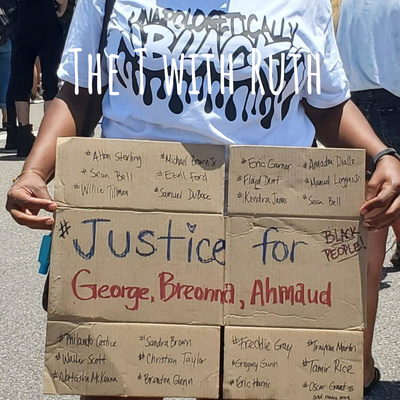 UNAPOLOGETICALLY
BLACK
The T with Ruth
#Alton Sterling
#Sean Bell
#Willie Tillman
#Michael Brown Jr
#Ezell Ford
#Samuel DuBose
#Eric Garner
#Floyd Dent
#Kendra James
#Amadou Diallo
#Manuel Loggins Jr
#Sean Bell
#Justice for
BLACK
PEOPLE!
George, Breonna, Ahmaud
#Philando Castile
#Walter Scott
#Natasha McKenna
#Sandra Brown
#Christian Taylor
#Brandon Glenn
#Freddie Gray
#Gregory Gunn
#Eric Harris
#Trayvon Martin
#Tamir Rice
#Oscar Grant
and many more